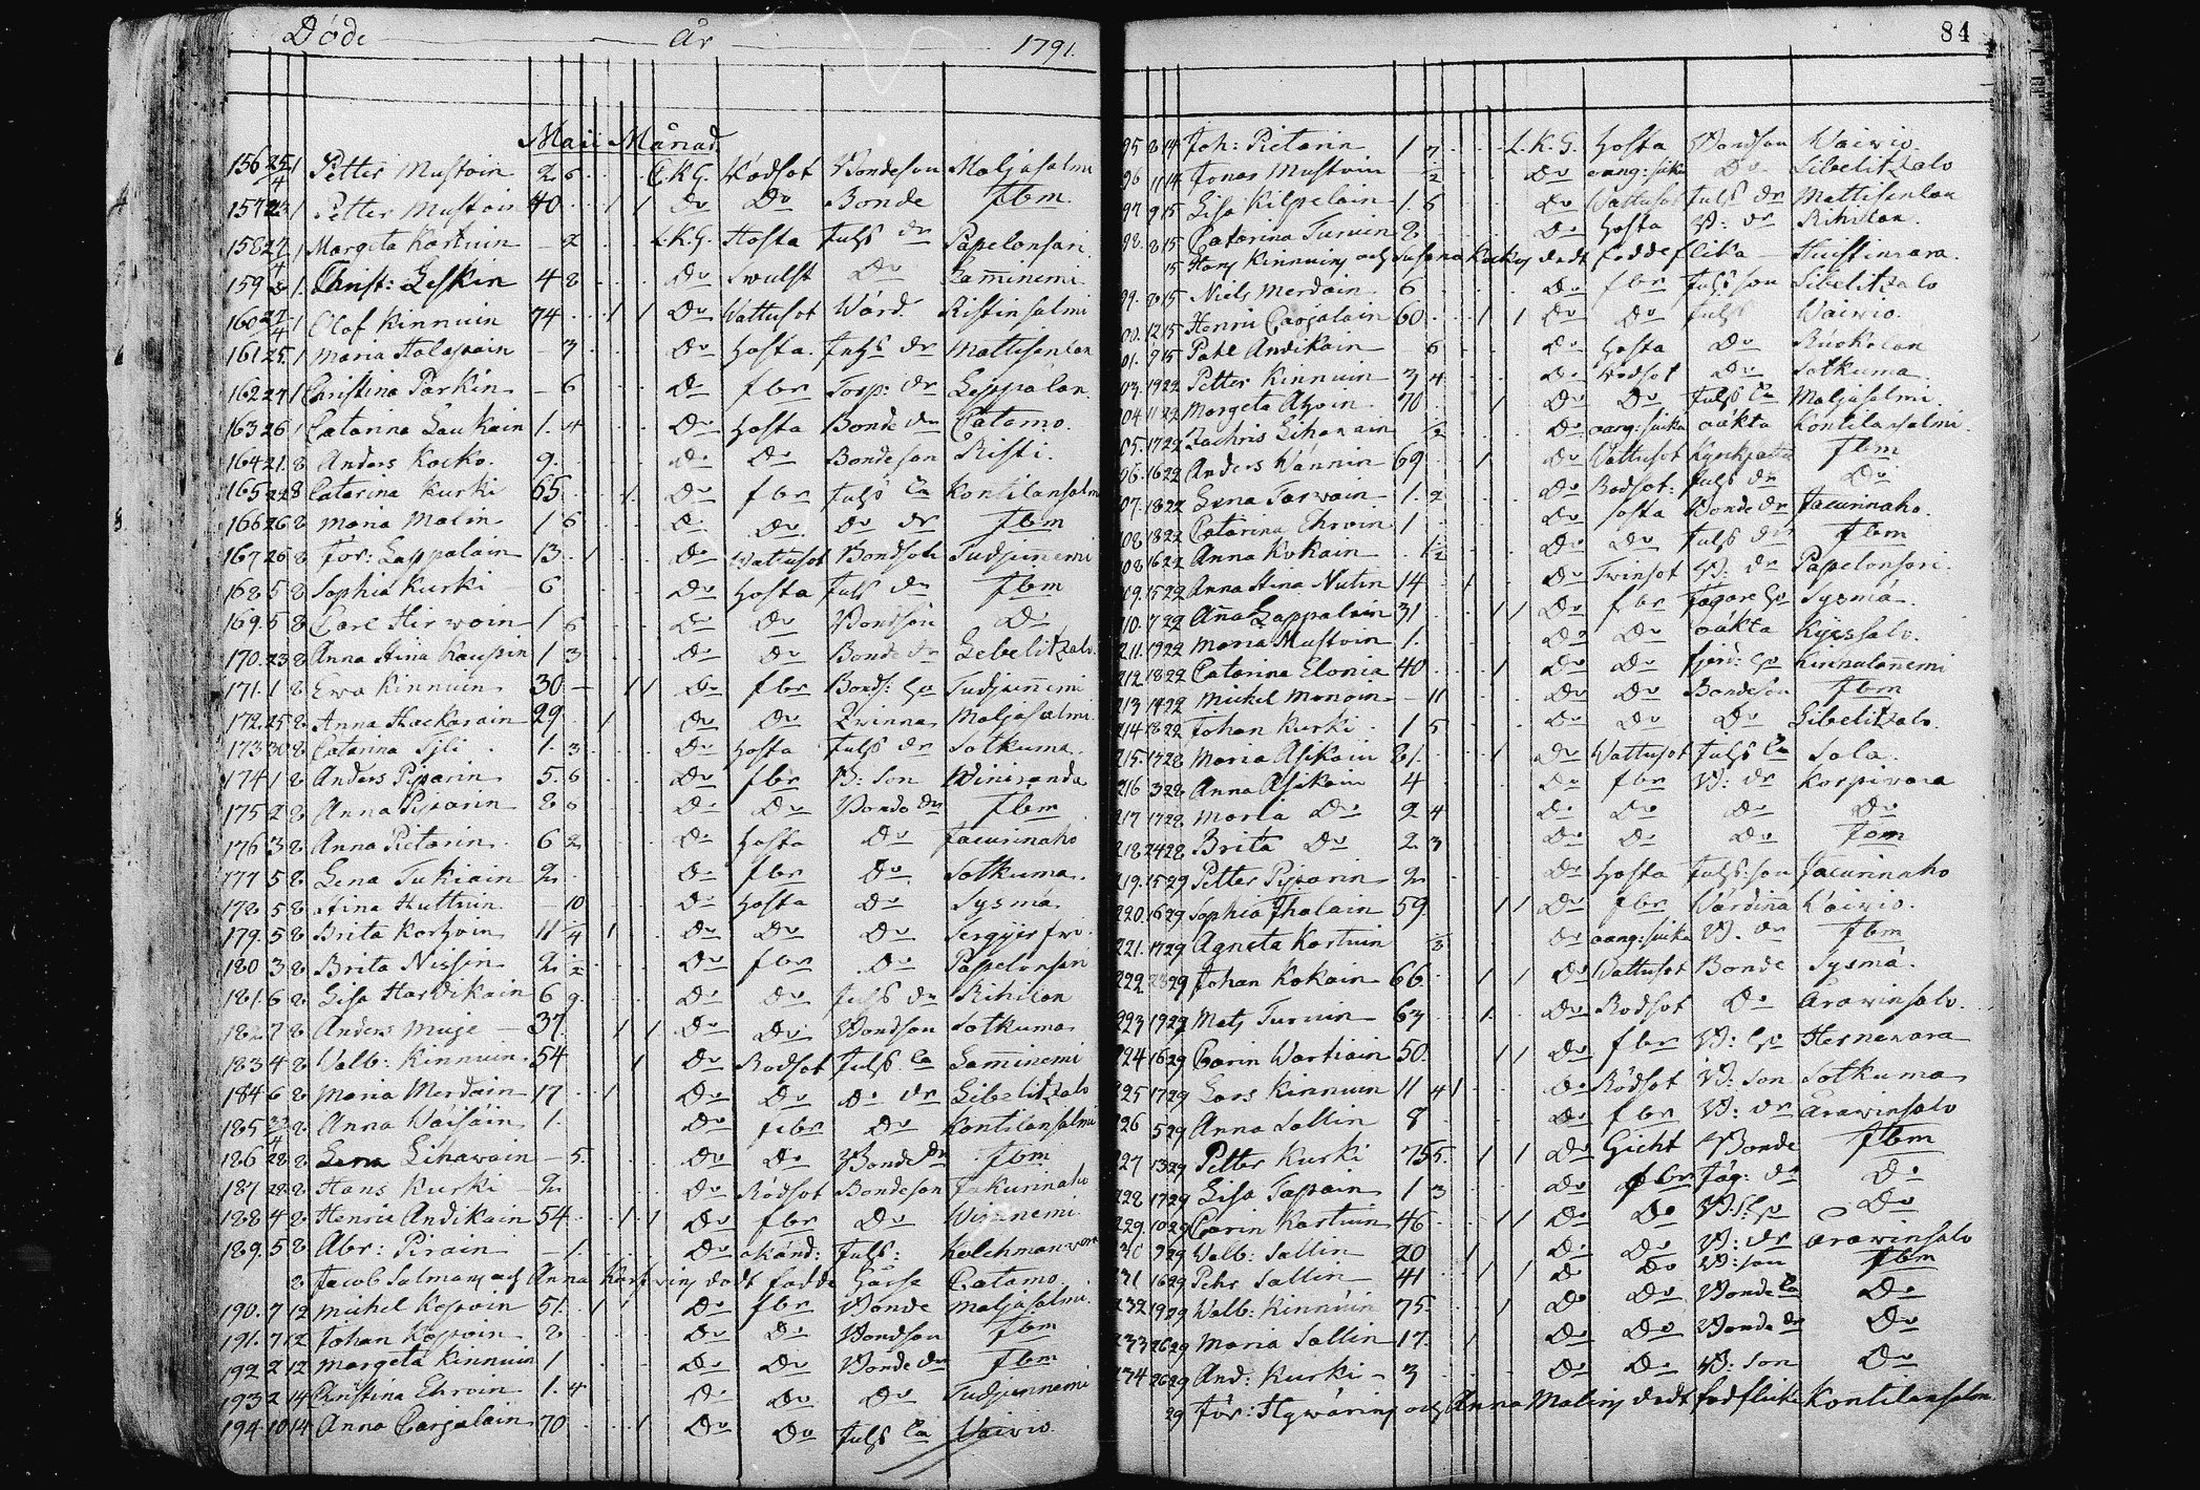 Döde År 1791.
Maii Månad.
156 25/4 1 Petter Mustoin 2 6 L.K.G. Rödsot Bondeson Maljasalmi
157 23 1 Petter Mustoin 40 1 1 Do Do Bonde Ibm
158 27/4 1 Margeta Kartuin - 2 L.K.G. Hosta Inhs dr Papelonsari
159 1. Christ: Leskin 4 8 Do Swulst Do Laminemi
160 27/4 1 Olof Kinnuin 74 1 1 Do Wattusot Wärd. Ristinsalmi
161 25 1 Maria Holopain - 3 Do Hosta Inhs dr Mattisenlax
162 27 1 Christina Parkin - 6 Do fbr Torp: dr Leppälax
163 26 1 Catarina Laukain 1. 4 Do Hosta Bonde dr Catamo.
164 21. 8 Anders Kocko. 9. Do Do Bondeson Risti.
165 22 8 Catarina Kurki 65 1. Do fbr Inhs Ea Kontilansalmi
166 26 8 Maria Malin 1 6 Do Do Do dr Ibm
167 26 8 För: Lappalain 13. 1 Do Wattusot Bondson Tudjunemi
168 5 8 Sophia Kurki 6 Do Hosta Inhs dr Ibm
169. 5 8 Carl Hirwoin 1 6 Do Do Bondson Do
170. 23 8 Anna Stina Kaupin 1 3 Do Do Bonde dr Lebelitzalo.
171. 1 8 Ewa Kinnuin 30 - 1 1 Do fbr Bonds: Hu Tudjunnemi
172. 25 8 Anna Hackarain 29 1 Do Do Qvinna Maljasalmi
173 30 8 Catarina Sjli 1. 3 Do Hosta Inhs dr Sotkuma.
174 1 8 Anders Pijparin 5. 6 Do fbr B: son Winiranda
175 2 8 Anna Pijparin 8 6 Do Do Bonde dr Ibm
176 3 8 Anna Pietarin. 6 2 Do Hosta Do Jacurinaho
177 5 8 Lena Tukiain 2 Do fbr Do Sotkuma.
178 5 8 Stina Huttuin - 10 Do Hosta Do Sysmä.
179. 5 8 Brita Korhoin 11 1/4 1 Do Do Do
180 3 8 Brita Nissin 2 1/2 Do fbr Do Papelonsari
181. 6 8 Lisa Hartikain 6 9 Do Do Inhs dr Rihilax
182. 7 8 Anders Muje 37. 1 1 Do Do Bondson Sotkuma
183 4 8 Walb: Kinnuin. 54 1 Do Rodsot Inhs Ea Laminemi
184 6 8 Maria Merdain 17 1 Do Do Do dr Libelitzalo
185 23/4 8 Anna Wäisäin 1. Do febr Do Kontilansalmi
186 28 8 Lena Lihawain - 5. Do Do Bonde dr Ibm
187 28 8 Hans Kurki - 2 Do Rödsot Bondeson Jakunnaho
188 4 8 Henric Andikain 54 1 1 Do fbr Do Wijnnemi.
189. 5 8 Abr: Pirain - 1. Do okänd: Inhs: Kolehmanwara
8 Jacob Salmans och Anna dödt födde Catamo.
190. 7 12 Michel Kopoin 51. 1 1 Do fbr Bonde Maljasalmi.
191. 7 12 Johan Kopoin 8 Do Do Bondson Ibm
192 2 12 Margeta Kinnuin 1 Do Do Bonde dr Ibm
193 2 14 Christina Ehroin 1. 4 Do Do Do Tudjunnemi
194. 10 14 Anna Carjalain 70 1 Do Do Inhs Ea Waivio.
84
95 8 14 Joh: Pietarin 1 7 L.K.G. Hosta Bondson Waivio.
96 11 14 Jonas Mustoin 1/2 Do oang: siuka Do Libelitzalo
97 9 15 Lisa Kilpelain 1. 6 Do Wattusot Inhs dr Mattisenlax
98. 8 15 Catarina Turuin 2 Do Hosta B: dr Rihilax.
15 Hans Kinnuins och Susana Kockos dödt födde flika Huistinvara.
99. 8 15 Niels Merdain 6 Do fbr Inhs son Libelitzalo
00. 12 15 Henric Carjalain 60 1 1 Do Do Inhs Waivio.
01. 9 15 Pahl Andikain - 6 Do Hosta Do Ruokolax
03. 19 22 Petter Kinnuin 3 4 Do Rodsot Do Sotkuma.
04 11 22 Margeta Ahoin 70 1 Do Do Inhs Ea Maljasalmi.
05. 17 22 Zachris Lihawain 1/2 Do oang: siuka oäkta Kontilansalmi.
06. 16 22 Anders Wännin 69 1 Do Wattusot Ibm
07. 18 22 Lena Tarwain 1. 2 Do Rodsot: Inhs dr Do
08 18 22 Catarina Ehroin 1 Do Hosta Bonde dr Jacunnaho.
08 16 22 Anna Kokain 1/2 Do Do Inhs dr Ibm
09. 15 22 Anna Stina Nutin 14 1 Do Twinsot B: dr Papelonsari.
10. 7 22 Anna Lappalain 31 1 1 Do fbr Sysmä.
211. 19 22 Maria Mustoin 1. Do Do oäkta
212. 18 22 Catarina Elonia 40 1 Do Do Kinnalanemi
213 14 22 Mickel Monoin - 11 Do Do Bondeson Ibm
214 28 22 Johan Kurki 1 5 Do Do Do Libelitzalo.
215. 17 28 Maria Asikain 81. 1 Do Wattusot Inhs Ea Sola.
216 3 28 Anna Asikain 4 Do fbr B: dr Korpivara
217 17 28 Maria Do 2 4 Do Do Do Do
218 24 28 Brita Do 2 3 Do Do Do Ibm
219. 15 29 Petter Pijparin 2 Do Hosta Inhs: son Jacunnaho
220. 16 29 Sophia Ihalain 59 1 1 Do fbr Wärdina Waivio.
221. 17 29 Agneta Kartuin 1/3 Do oang: siuka B. dr Ibm
222. 23 29 Johan Kokain 66. 1 1 Do Wattusot Bonde Sysmä.
223 19 29 Mats Turuin 63 1. Do Rodsot Do Arawinsalo.
224 16 29 Carin Wartiain 50. 1 1 Do fbr B: Hu Hernevara
225 17 29 Lars Kinnuin 11 4 1 Do Rödsot B: son Sotkuma
226 5 29 Anna Sallin 8 Do fbr B: dr Arawinsalo
227 13 29 Petter Kurki 75 5. 1 1 Do Gicht Bonde Ibm
228 17 29 Lisa Tapain 1 3 Do fbr Do
229. 10 29 Carin Kartuin 46 1 1 Do Do Do
30 9 29 Walb: Sallin 20 1 Do Do B: dr Arawinsalo
231 16 29 Pehr Sallin 41 1 1 Do Do B: son Ibm
232 19 29 Walb: Kinnuin 75. 1 Do Do Bonde Ea Do
233 26 29 Maria Sallin 17. 1 Do Do Bonde dr Do
234 26 29 And: Kurki - 3 Do Do B: son Do
29 För: Hywärins och Anna Malins dödt föd flicka Kontilansalmi